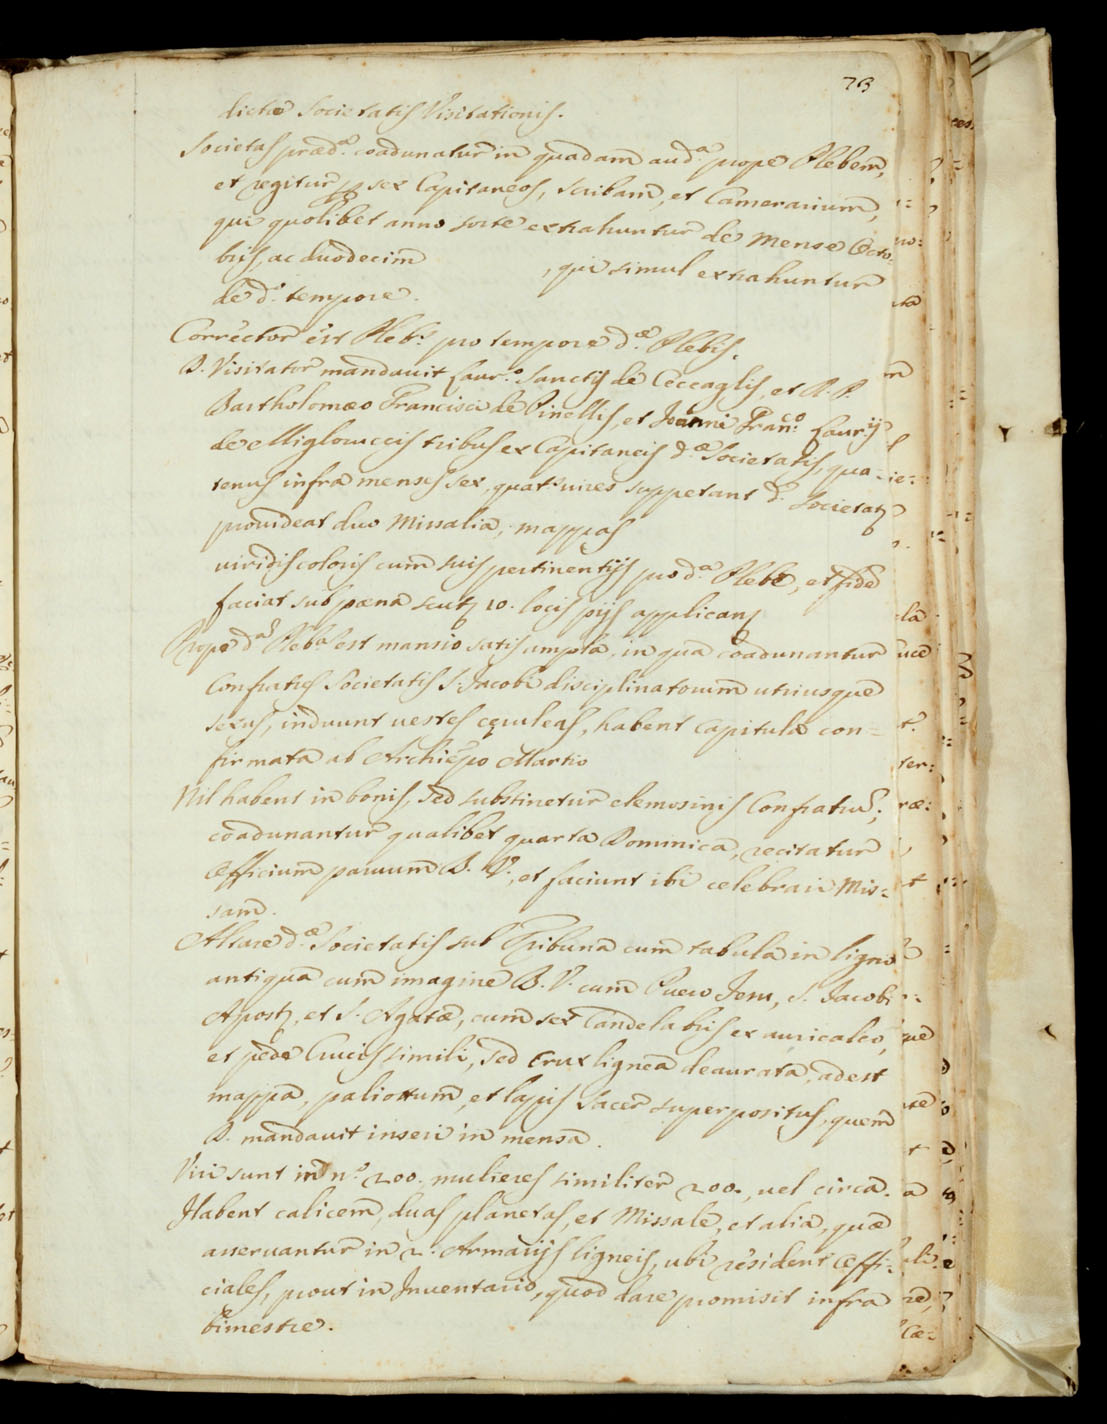 73
dictæ Societatis Visitationis.
Societas præd.ª coadunatur in quadam aud.ª prope Plebem,
et regitur per sex Capitaneos, scribam, et Camerarium,
qui quolibet anno sorte extrahuntur de mense Octo=
bris, ac duodecim , qui simul extrahuntur
de d.º tempore.
Corrector est Pleb.s pro tempore d.æ Plebis.
D. Visitator mandavit Laur.º Sanctis de Ceccaglis, et R. P.
Bartholomæo Francisci de Pinellis, et Joanni Fran.co Laur.ij
de Migloruccis tribus ex Capitaneis d.æ Societatis, qua=
tenus infra menses sex, quat.s vires suppetant d.
Societatis
provideat duo Missalia, mappas
viridis coloris cum suis pertinentijs pro d.ª Plebe, et fidē
faciat sub pæna scut. 10. locis pijs applican.
Prope d.ª Pleb. est mansio satis ampla, in qua coadunantur
Confratres Societatis S. Jacobi disciplinatorum utriusque
sexus, induunt vestes cęruleas, habent capitula con=
firmata ab Archiepo Martio
Nil habent in bonis, sed substinetur elemosinis Confratrū;
coadunantur qualibet quarta Dominica, recitatur
Officium parvum B. V., et faciunt ibi celebrari Mis=
sam.
Altare d.æ Societatis sub Tribuna cum tabula in ligno
antiqua cum imagine B. V. cum Puero Jesu, S. Jacobi
Apost., et S. Agatæ, cum sex Candelabris ex auricalco,
et pede Crucis simili, sed crux lignea deaurata, adest
mappa, paliottum, et lapis sacer superpositus, quem
D. mandavit inseri in mensa.
Viri sunt in n.º 200. mulieres similiter 200., vel circa.
Habent calicem, duas planetas, et Missale, et alia, quæ
asservantur in 2. Armarijs ligneis, ubi resident Offi=
ciales, prout in Inventario, quod dare promisit infra
bimestre.